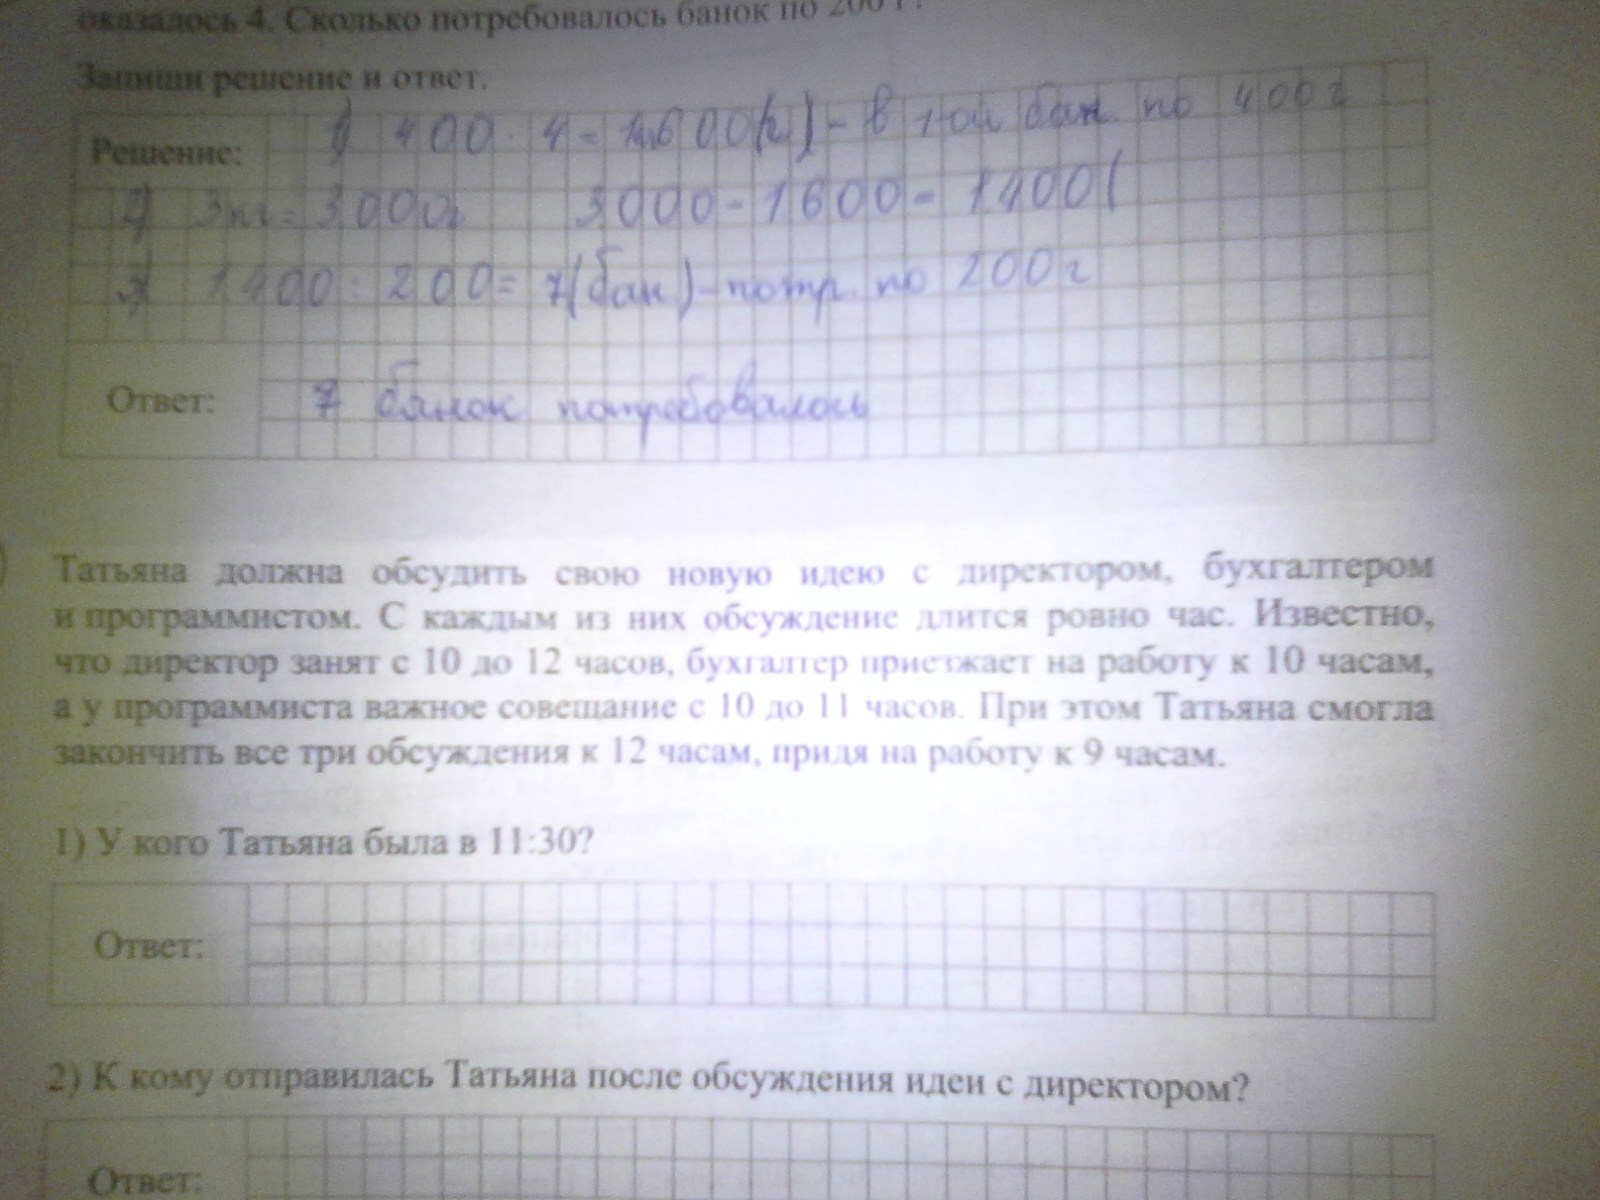 оказалось 4. Сколько потребовалось банок по 200 г?
Запиши решение и ответ.
Решение: 1) 400 · 4 = 1600(г) - в 1-ой бан. по 400 г
2) 3кг = 3000г 3000 - 1600 = 1400(
3) 1400 : 200 = 7(бан) - потр. по 200 г
Ответ: 7 банок потребовалось
Татьяна должна обсудить свою новую идею с директором, бухгалтером
и программистом. С каждым из них обсуждение длится ровно час. Известно,
что директор занят с 10 до 12 часов, бухгалтер приезжает на работу к 10 часам,
а у программиста важное совещание с 10 до 11 часов. При этом Татьяна смогла
закончить все три обсуждения к 12 часам, придя на работу к 9 часам.
1) У кого Татьяна была в 11:30?
Ответ:
2) К кому отправилась Татьяна после обсуждения идеи с директором?
Ответ: